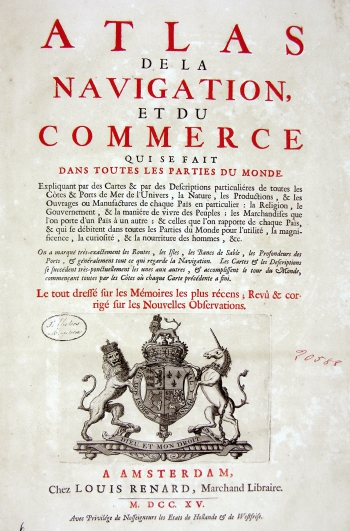 ATLAS
DE LA
NAVIGATION,
ET DU
COMMERCE
QUI SE FAIT
DANS TOUTES LES PARTIES DU MONDE.
Expliquant par des Cartes & par des Descriptions particuliéres de toutes les
Côtes & Ports de Mer de l'Univers, la Nature, les Productions, & les
Ouvrages ou Manufactures de chaque Païs en particulier: la Religion, le
Gouvernement, & la maniére de vivre des Peuples; les Marchandises que
l'on porte d'un Païs à un autre; & celles que l'on rapporte de chaque Païs,
& qui se débitent dans toutes les Parties du Monde pour l'utilité, la magni-
ficence, la curiosité, & la nourriture des hommes, &c.
On a marqué très-exactement les Routes, les Isles, les Bancs de Sable, les Profondeurs des
Ports, & généralement tout ce qui regarde la Navigation. Les Cartes & les Descriptions
se succédent très-ponctuellement les unes aux autres, & accomplissent le tour du Monde,
commençant toutes par les Côtes où chaque Carte précédente a fini.
Le tout dressé sur les Mémoires les plus récens; Revû & cor-
rigé sur les Nouvelles Observations.
DIEU ET MON DROIT
20588
A AMSTERDAM,
Chez LOUIS RENARD, Marchand Libraire.
M. DCC. XV.
Avec Privilége de Nosseigneurs les Etats de Hollande & de Westfrise.